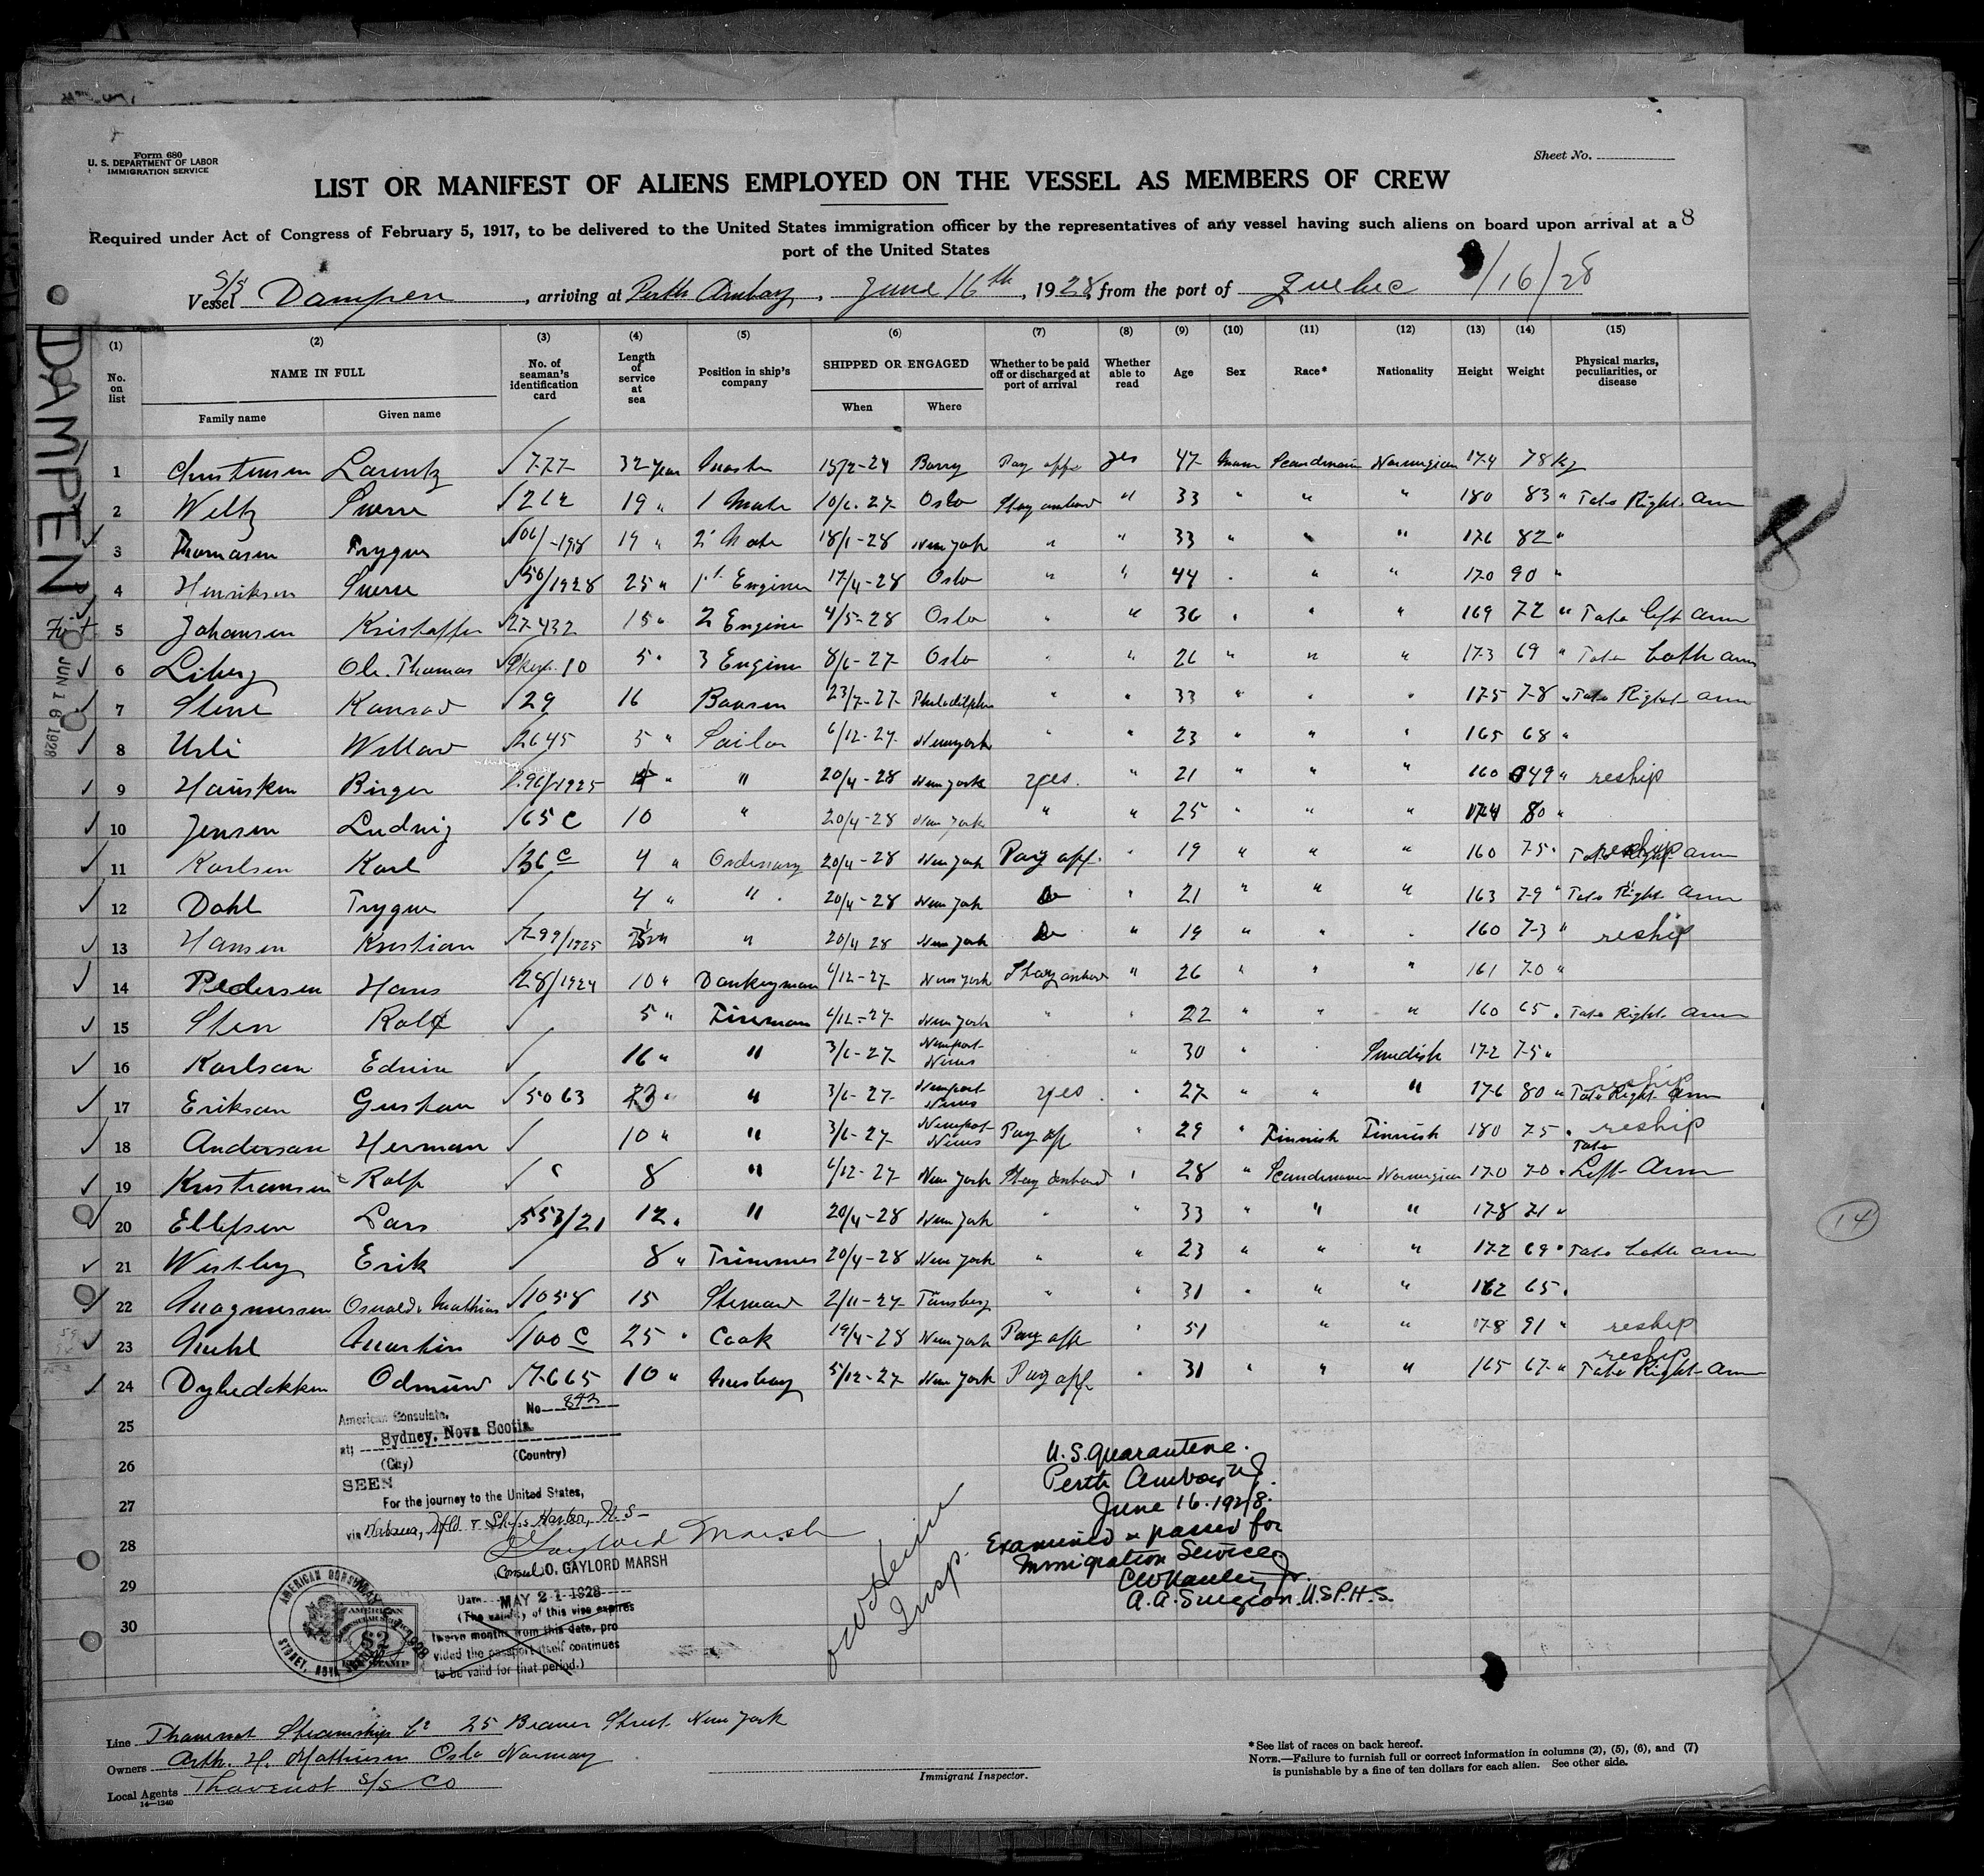 Form 680
U. S. DEPARTMENT OF LABOR
IMMIGRATION SERVICE
Sheet No.
LIST OR MANIFEST OF ALIENS EMPLOYED ON THE VESSEL AS MEMBERS OF CREW
Required under Act of Congress of February 5, 1917, to be delivered to the United States immigration officer by the representatives of any vessel having such aliens on board upon arrival at a 8
port of the United States
S/S
Vessel Dampen, arriving at Perth Amboy, June 16th, 1928, from the port of Quebec /16/28
DAMPEN
JUN 16 1928
(1) (2) (3) (4) (5) (6) (7) (8) (9) (10) (11) (12) (13) (14) (15)
No. on list
NAME IN FULL
Family name Given name
No. of seaman's identification card
Length of service at sea
Position in ship's company
SHIPPED OR ENGAGED
When Where
Whether to be paid off or discharged at port of arrival
Whether able to read
Age Sex Race* Nationality Height Weight
Physical marks, peculiarities, or disease
1 Christensen Larentz 777 32 year Master 24 Barry Pay off yes 47 Scandinavian Norwegian 174 78 kg
2 Weltz Sverre 19 " 1 Mate 10/6-27 Oslo Stay onbord " 33 " " " 180 83 " Tato Right arm
3 Thomasen Trygve 19 " 2 Mate 18/1-28 New York " " 33 " " " 176 82 "
4 Henriksen Sverre 50/1928 25 " 1st Engineer 17/4-28 Oslo " " 44 " " " 170 90 "
5 Johansen Kristoffer 27432 15 " 2 Engineer 4/5-28 Oslo " " 36 " " " 169 72 " Tato left arm
6 Liberg Ole Thomas 10 5 " 3 Engineer 8/6-27 Oslo " " 26 " " " 173 69 " Tato both arm
7 Stene Konrad 29 16 Boatsn 23/7-27 Philadelphia " " 33 " " " 175 78 " Tato Right arm
8 Urli 2645 5 " Sailor 6/12-27 New York " " 23 " " " 165 68 "
9 Birger 96/1925 4 " " 20/4-28 New York yes " 21 " " " 160 49 " reship
10 Jensen Ludvig 65 C 10 " 20/4-28 New York " " 25 " " " 174 80 "
11 Karlsen Karl 36 C 4 " Ordinary 20/4-28 New York Pay off " 19 " " " 160 75 " Tato Right arm reship
12 Dahl Trygve 4 " " 20/4-28 New York Do " 21 " " " 163 79 " Tato Right arm
13 Hansen Kristian 799/1925 " 20/4 28 New York Do " 19 " " " 160 73 " reship
14 Pedersen Hans 28/1924 10 " Donkeyman 6/12-27 New York Stay onbord " 26 " " " 161 70 "
15 Sten Rolf 5 " Fireman 6/12-27 New York " " 22 " " " 160 65 " Tato Right arm
16 Karlson Edvin 16 " " 3/6-27 Newport News " " 30 " " Swedish 172 75 "
17 Erikson Gustav 5063 23 " " 3/6-27 Newport News yes " 27 " " " 176 80 " Tato Right arm reship
18 Anderson Herman 10 " " 3/6-27 Newport News Pay off " 29 " Finnish Finnish 180 75 " reship
19 Kristiansen Rolf 8 " 6/12-27 New York Stay onbord " 28 " Scandinavian Norwegian 170 70 " Tato Left Arm
20 Ellefsen Lars 553/21 12 " " 20/4-28 New York " " 33 " " " 178 71 "
21 Westby Erik 8 " Trimmer 20/4-28 New York " " 23 " " " 172 69 " Tato both arm
22 Magnussen Osvald Mathias 1058 15 Steward 2/11-27 Tønsberg " " 31 " " " 162 65 "
23 Martin 100 C 25 " Cook 19/4-28 New York Pay off " 51 " " 178 91 " reship
24 Odmund 7665 10 " Messboy 5/12-27 New York Pay off " 31 " " " 165 67 " Tato Right arm reship
25
26
27
28
29
30
14
American Consulate, No 843
at; Sydney, Nova Scotia
(City) (Country)
SEEN
For the journey to the United States,
via Wabana, Nfld
Gaylord Marsh
Consul O. GAYLORD MARSH
Date MAY 21 1928
(The validity of this visa expires
twelve months from this date, pro
vided the passport itself continues
to be valid for that period.)
AMERICAN CONSULAR
SYDNEY, NOVA SCOTIA
AMERICAN
$2
FEE STAMP
Insp.
U.S. Quarantine.
Perth Amboy NJ.
June 16. 1928.
Examined & passed for
Immigration Service
A. A. Surgeon. U.S.P.H.S.
Line Steamship Co 25 Beaver Street New York
Owners Arth. H. Mathiesen Oslo Norway
Local Agents Thavenot S/S Co
14—1240
Immigrant Inspector.
*See list of races on back hereof.
NOTE.—Failure to furnish full or correct information in columns (2), (5), (6), and (7)
is punishable by a fine of ten dollars for each alien. See other side.